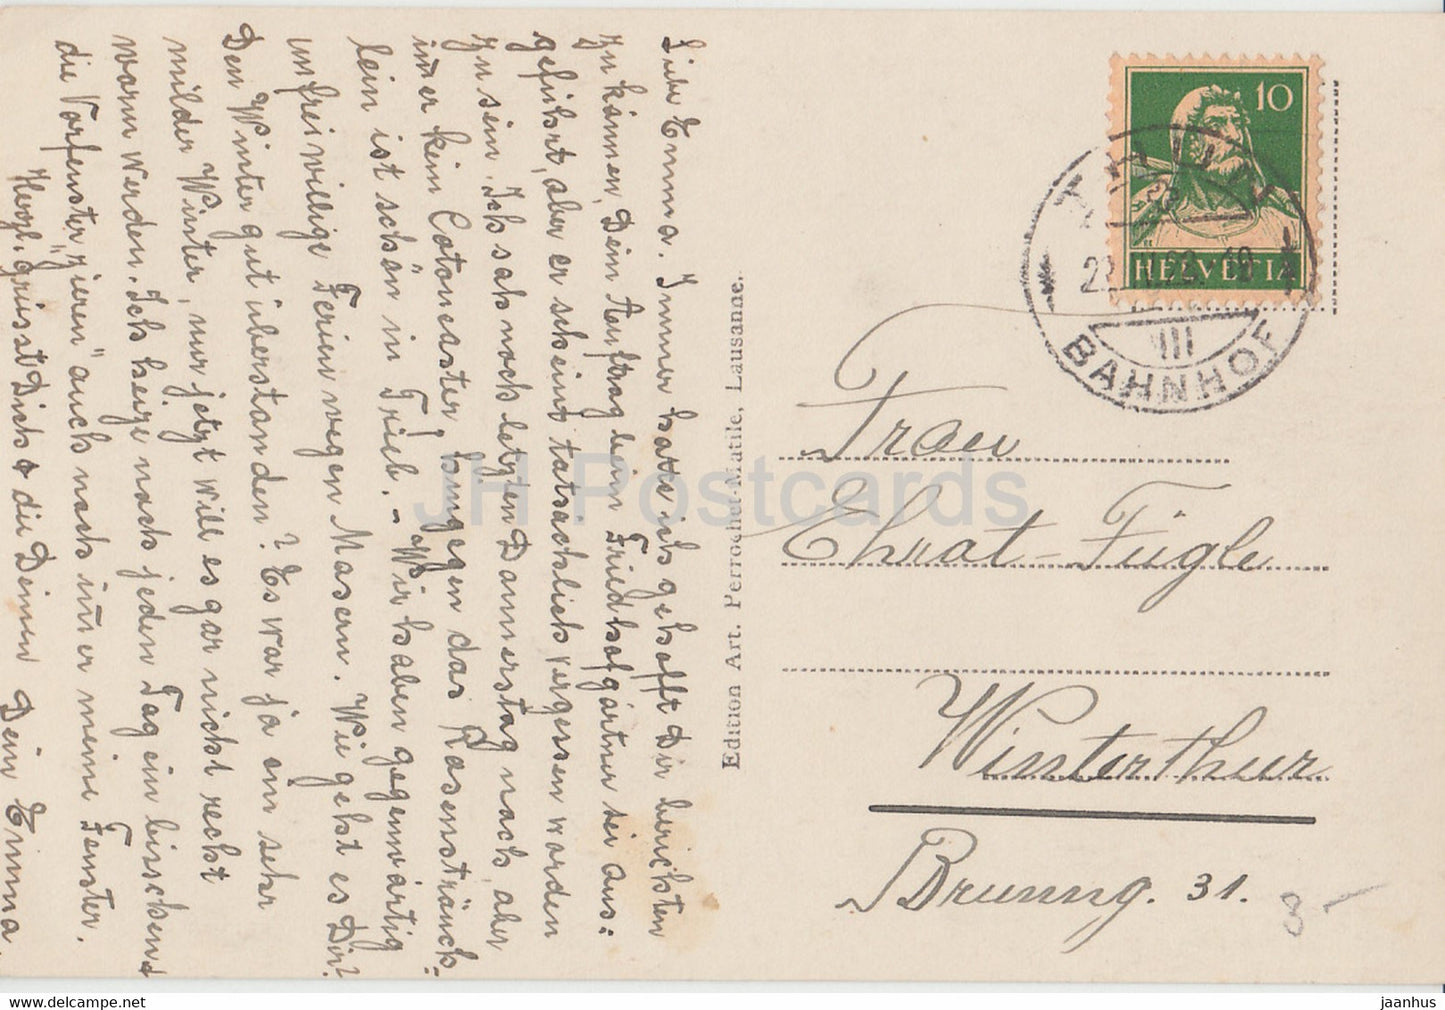 Liebe Emma. Immer hatte ich gehofft Dir berichten
zu können, Dein Auftrag beim Friedhofgärtner sei aus=
geführt, aber er scheint tatsächlich vergessen worden
zu sein. Ich sah noch letzten Donnerstag nach, aber
im̅er kein Cotoneaster, hingegen das Rosensträuch=
lein ist schön in Trieb. – Wir haben gegenwärtig
unfreiwillige Ferien wegen Masern. Wie geht es Dir?
Den Winter gut überstanden? Es war ja ein sehr
milder Winter, nur jetzt will es gar nicht recht
warm werden. Ich heize noch jeden Tag ein bisschen &
die Vorfenster "zieren" auch noch im̅er meine Fenster.
Herzl. grüsst Dich & die Deinen Dein Emma.
Edition Art. Perrochet-Matile, Lausanne.
10
HELVETIA
THUN
BAHNHOF
Frau
Ehrat-Fügle
Winterthur
Brunng. 31.
8.–
JH Postcards
www.hippostcard.com/store/jh-postcards
jaanhus